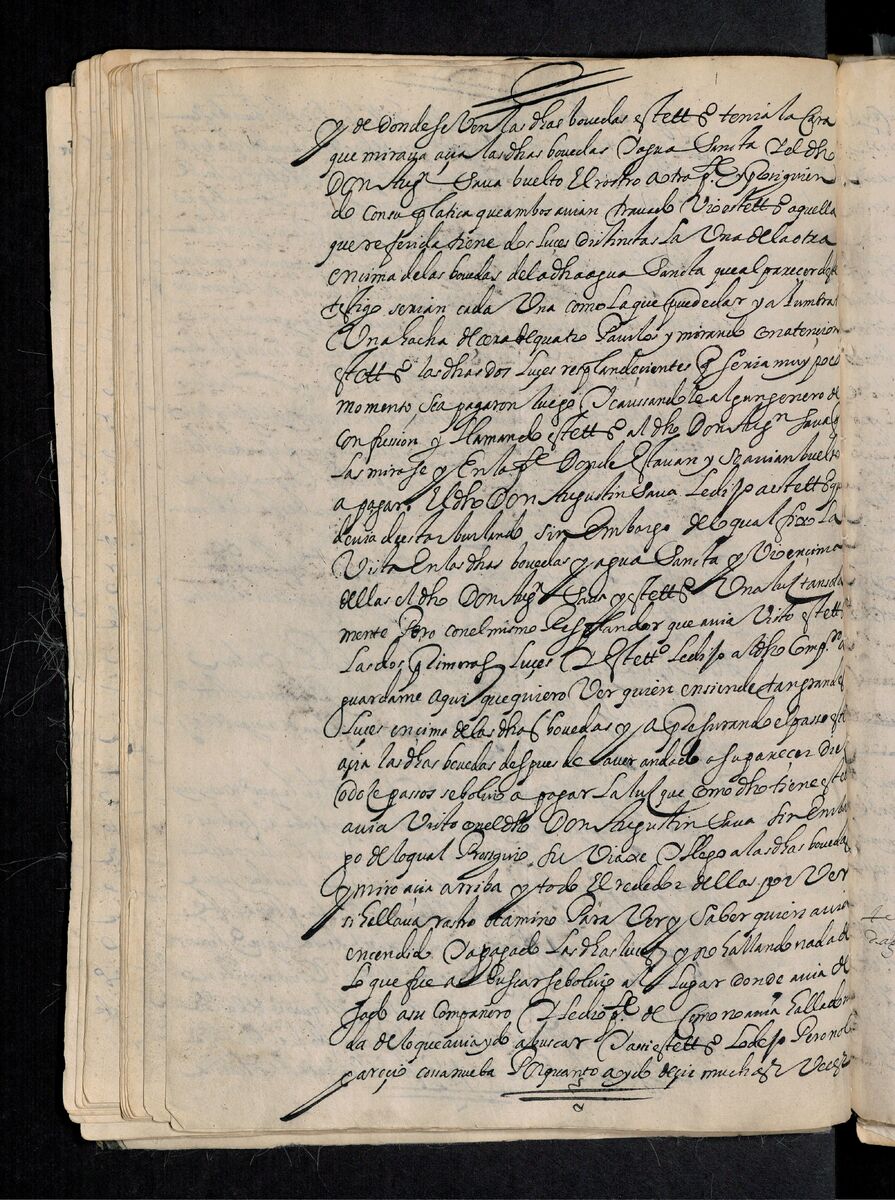 y de Donde se Ven las dhas bovedas este tt.º tenia la Cara
que mirava açia las dhas bovedas y agua Sancta y el dho
Don Aug.n Sava buelto El rostro a otra p.te y Prosiguien
do Con su platica que ambos avian travado Vio este tt.º aquella
que referida tiene dos luces Distintas La Una de la otra
encima de las bovedas de la dha agua Sancta que al parecer deste
testigo serian cada Una como La que puede dar y alumbrar
Una hacha de çera de quatro Pavilos y mirando con atencion
este tt.º las dhas dos luçes resplandecientes q seria muy poco
momento, se apagaron luego y caussandole algun genero de
confussion y llamando este tt.º al dho Don Aug.n Sava q
Las mirase y En la p.te Donde Estavan y se avian buelto
a apagar. El dho Don Augustin Sava Le dijo a este tt.º q
devia de estar burlando, sin Embargo de lo qual fixo La
Vista En las dhas bovedas y agua Sancta y Vio encima
dellas el dho Don Aug.n Sava y este tt.º Una luz tansola
mente Pero con el mismo Resplandor que avia Visto este tt.º
Las dos Primeras Luçes y Este tt.º Le dijo al dho Comp.ro
guardame aqui que quiero Ver quien ensiende tan grandes
Luçes encima de las dhas bovedas y apresurando el passo
açia las dhas bovedas despues de aver andado a su parecer Diez
o doçe passos se bolvio a apagar La luz que como dho tiene este tt.º
avia Visto con el dho Don Augustin Sava sin Embar
go de lo qual Prosiguio su Viaxe y llego a las dhas bovedas
y miro açia arriba y todo El rededor dellas por Ver
si hallava rastro o camino Para Ver y Saber quien avia
encendido y apagado Las dhas luces y no hallando nada de
Lo que fue a Buscar se bolvio al Lugar donde avia de
jado a su Compañero y Le dio p.te de Como no avia hallado na
da de lo que avia ydo a buscar y assi este tt.º Lo dejo Pero no le
pareçio cossa nueba Porquanto a oydo deçir muchas Veces